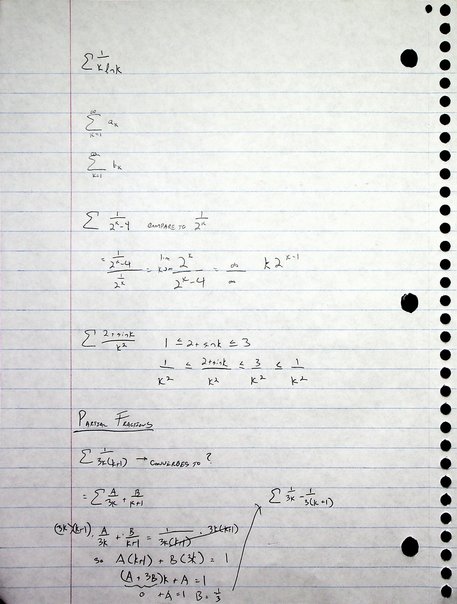 ∑ 1/(k ln k)
∑_{k=1}^{∞} a_k
∑_{k=1}^{∞} b_k
∑ 1/(2^k-4) COMPARE TO 1/2^k
= (1/(2^k-4))/(1/2^k) = lim_{k→∞} 2^k/(2^k-4) = ∞/∞ k2^{k-1}
∑ (2+sink)/k² 1 ≤ 2+sink ≤ 3
1/k² ≤ (2+sink)/k² ≤ 3/k² ≤ 1/k²
PARTIAL FRACTIONS
∑ 1/(3k(k+1)) → CONVERGES TO ?
= ∑ A/3k + B/(k+1) ∑ 1/3k - 1/(3(k+1))
(3k)(k+1) · A/3k + B/(k+1) = 1/(3k(k+1)) · 3k(k+1)
so A(k+1) + B(3k) = 1
(A + 3B)k + A = 1
0 + A = 1 B = 1/3